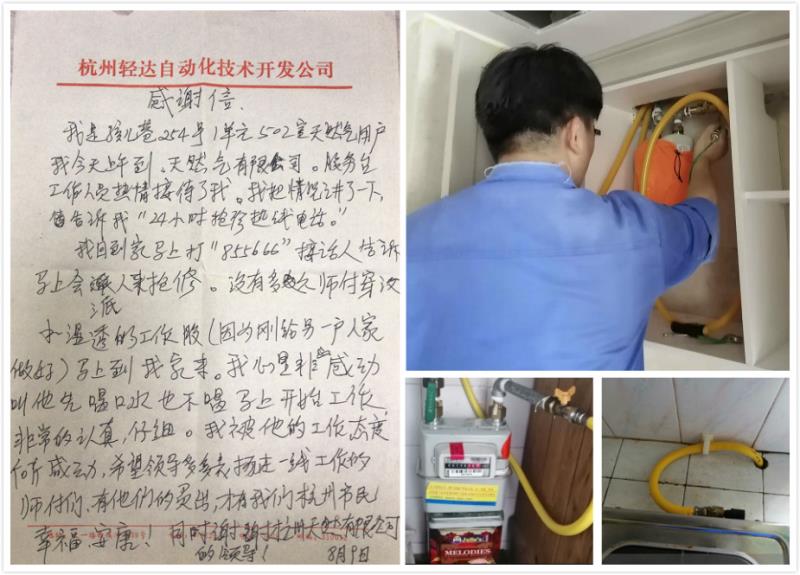 杭州轻达自动化技术开发公司
感谢信.
我是孩儿巷254号1单元502室天然气用户
我今天上午到.天然气有限公司.服务台
工作人员热情接待了我.我把情况讲了一下,
告诉我“24小时抢修热线电话。”
我回到家马上打“855666”接话人告诉
马上会派人来抢修.没有多久师付穿汝
水湿透的工作服(因为刚给另一户人家
做好)马上到我家来。我心里非常感动
叫他先喝口水也不喝马上开始工作,
非常的认真,仔细。我被他的工作态度
所感动,希望领导多多表扬在一线工作的
师付们,有他们的付出,才有我们杭州市民
幸福、安康!同时谢谢杭州天然有限公司
的领导!
8月9日
MELODIES